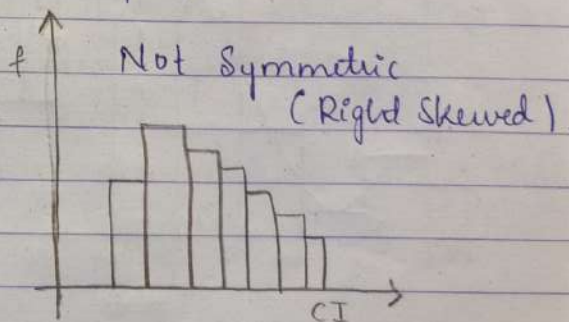 f
Not Symmetric
(Right Skewed)
CI